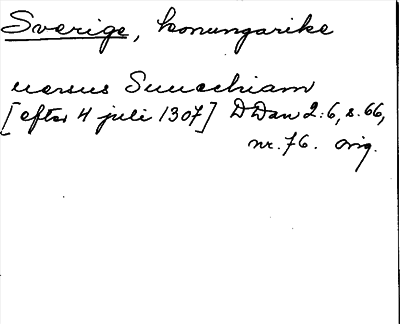 Sverige, konungarike
uersus Suuechiam
[efter 4 juli 1307] DDan 2:6, s. 66,
nr. 76. orig.